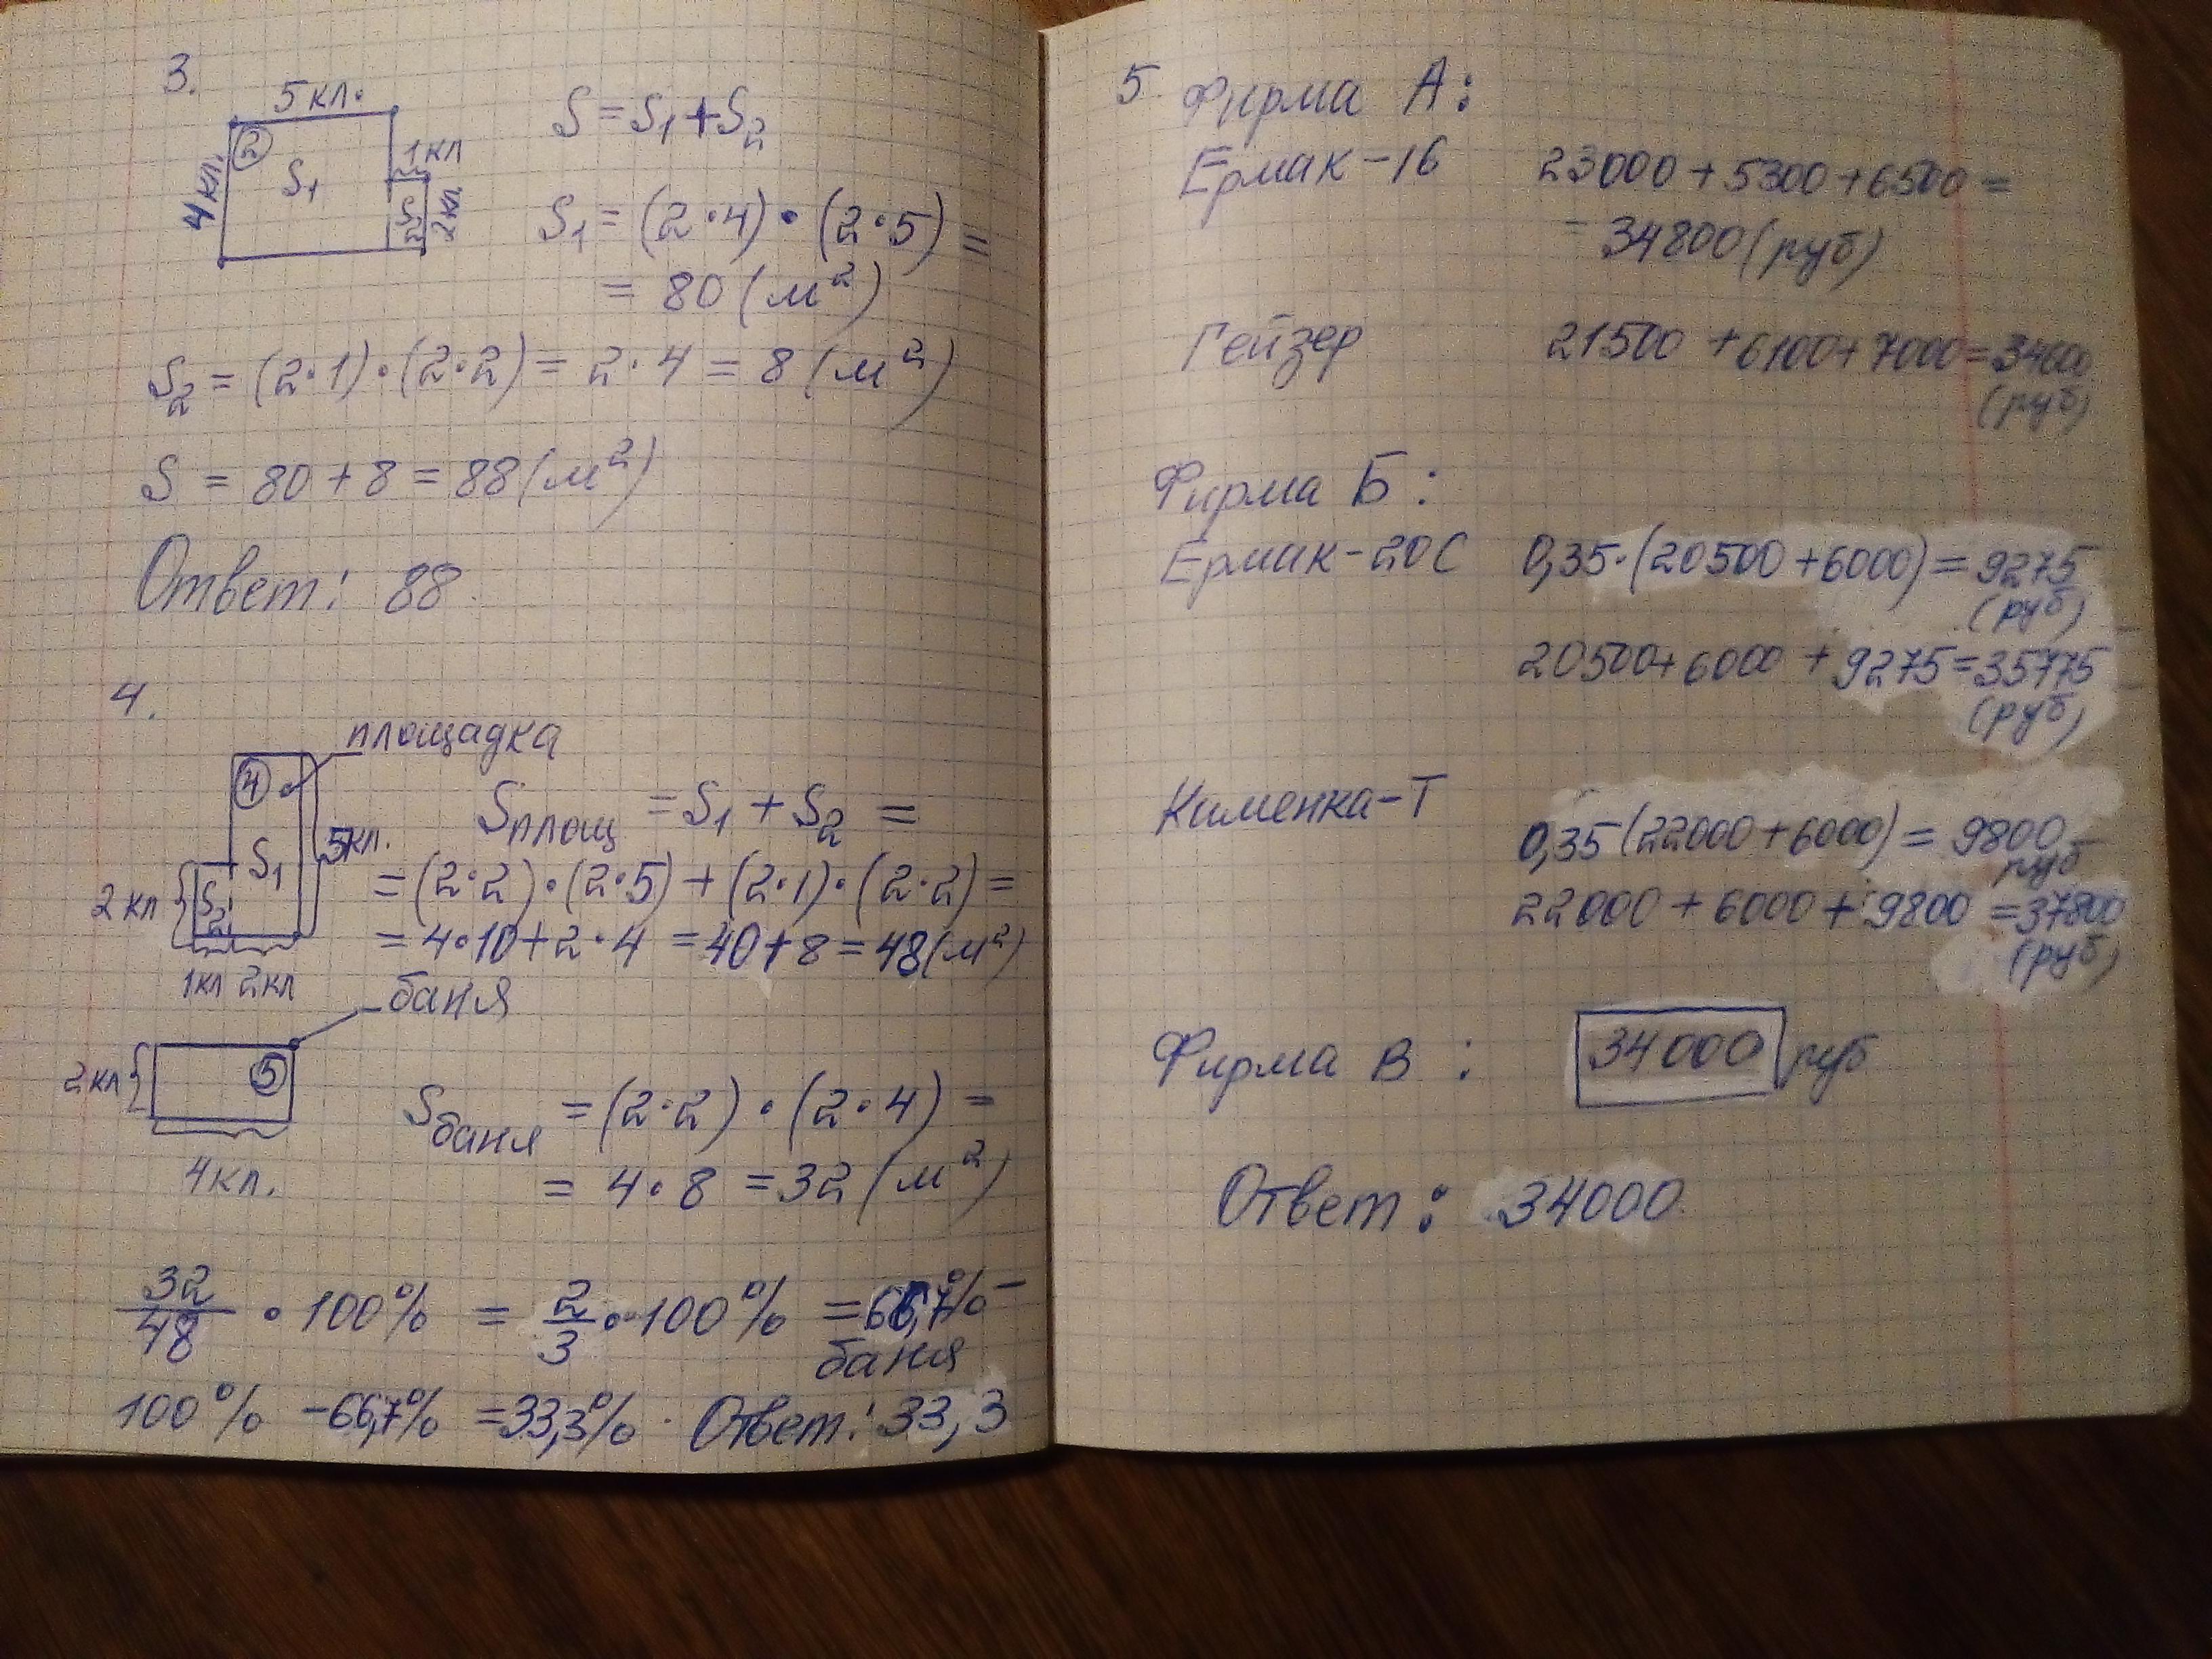 3.
5 кл.
② 1 кл
4 кл. S₁ S₂ 2 кл.
S = S₁ + S₂
S₁ = (2·4)·(2·5) =
= 80 (м²)
S₂ = (2·1)·(2·2) = 2·4 = 8 (м²)
S = 80 + 8 = 88 (м²)
Ответ: 88
4.
площадка
④
S₁ 5 кл.
2 кл S₂
1кл 2кл
Sплощ = S₁ + S₂ =
= (2·2)·(2·5) + (2·1)·(2·2) =
= 4·10 + 2·4 = 40 + 8 = 48 (м²)
баня
2 кл ⑤
4 кл.
Sбаня = (2·2)·(2·4) =
= 4·8 = 32 (м²)
32/48 · 100% = 2/3 · 100% = 66,7% –
баня
100% – 66,7% = 33,3% . Ответ: 33,3
5. Фирма А:
Ермак-16 23000 + 5300 + 6500 =
= 34800 (руб)
Гейзер 21500 + 6100 + 7000 = 34600
(руб)
Фирма Б:
Ермак-20С 0,35·(20500 + 6000) = 9275
(руб)
20500 + 6000 + 9275 = 35775
(руб)
Кименка-Т
0,35 (22000 + 6000) = 9800
руб
22000 + 6000 + 9800 = 37800
(руб)
Фирма В : 34000 руб
Ответ: 34000